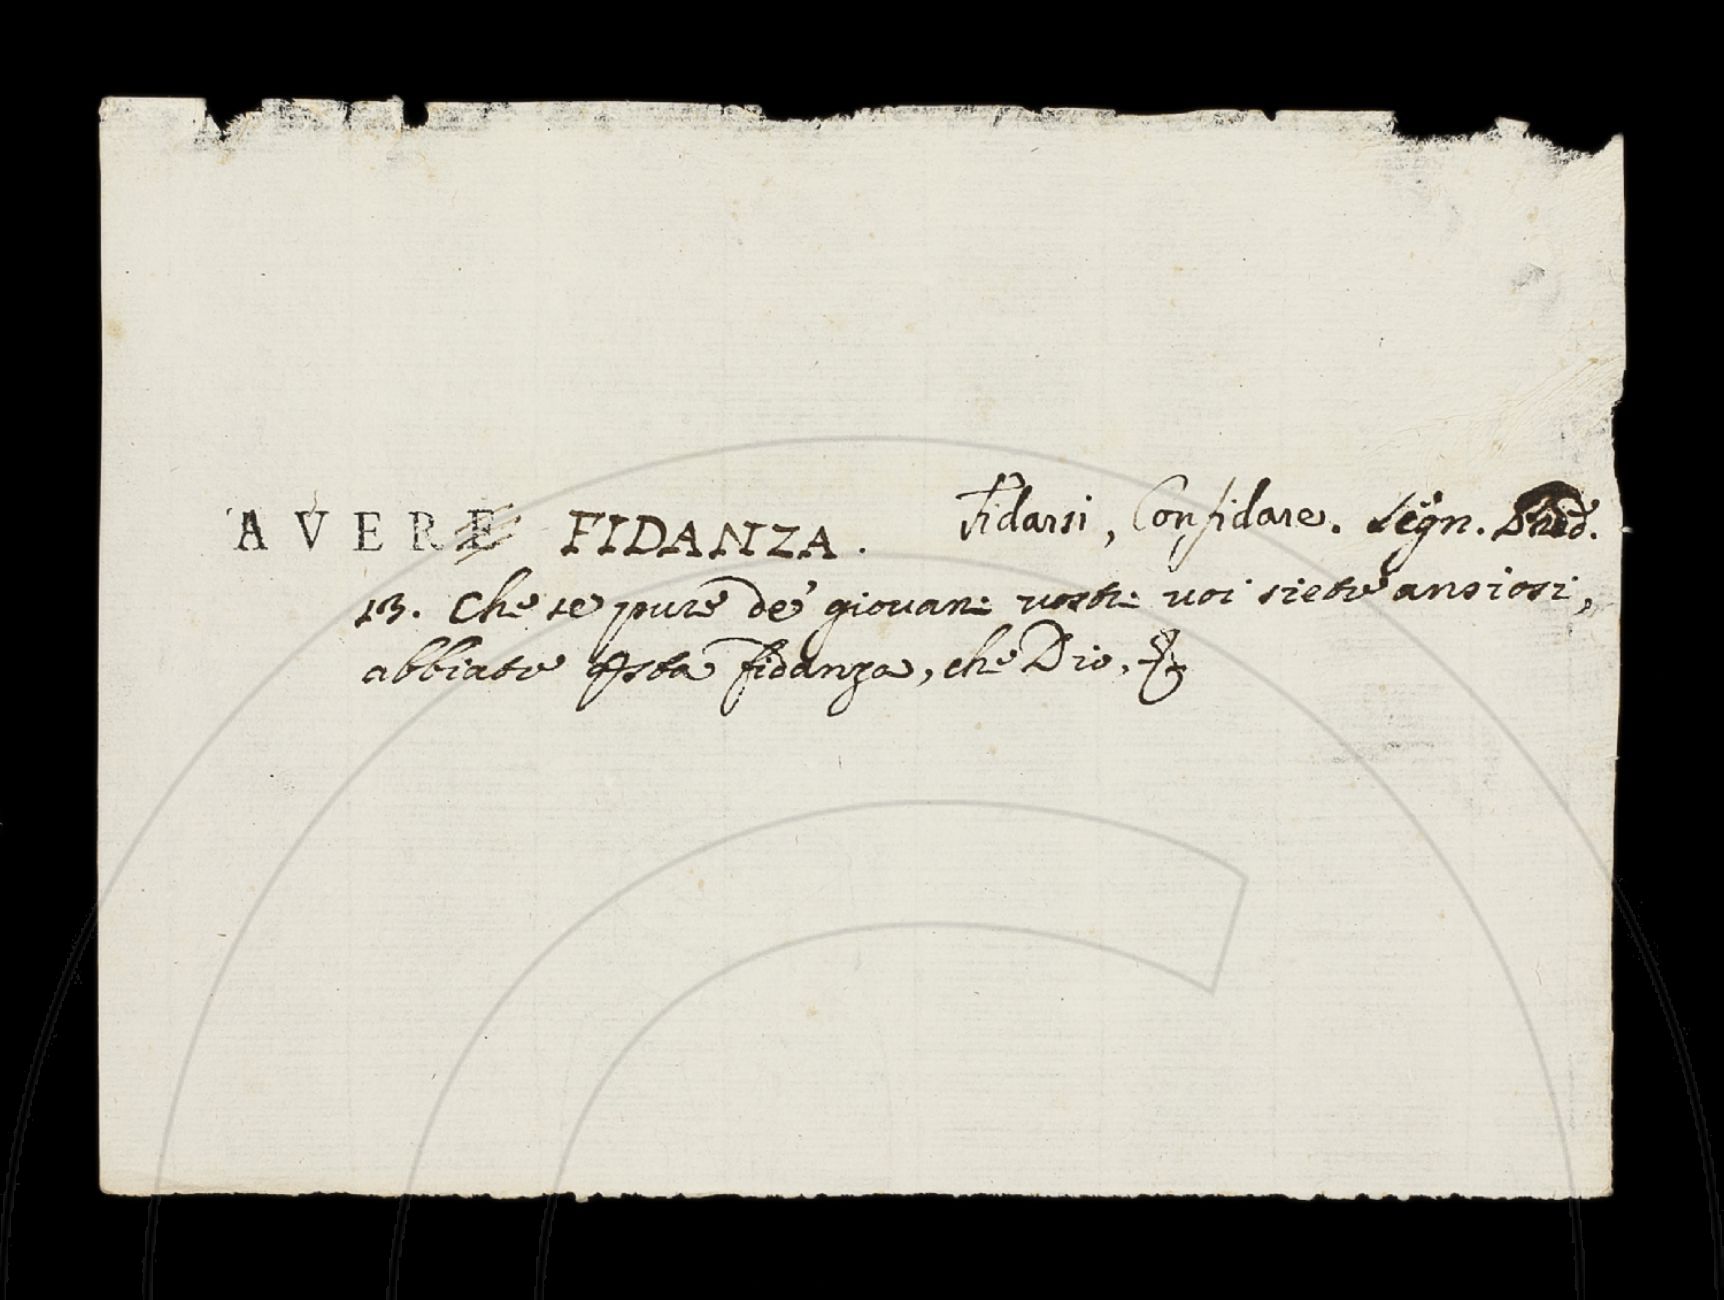 AVERE FIDANZA. Fidarsi, Confidare. Segn. Pred.
13. Che se pure de' giovani vostri voi siete ansiosi,
abbiate qsta fidanza, che Dio, &